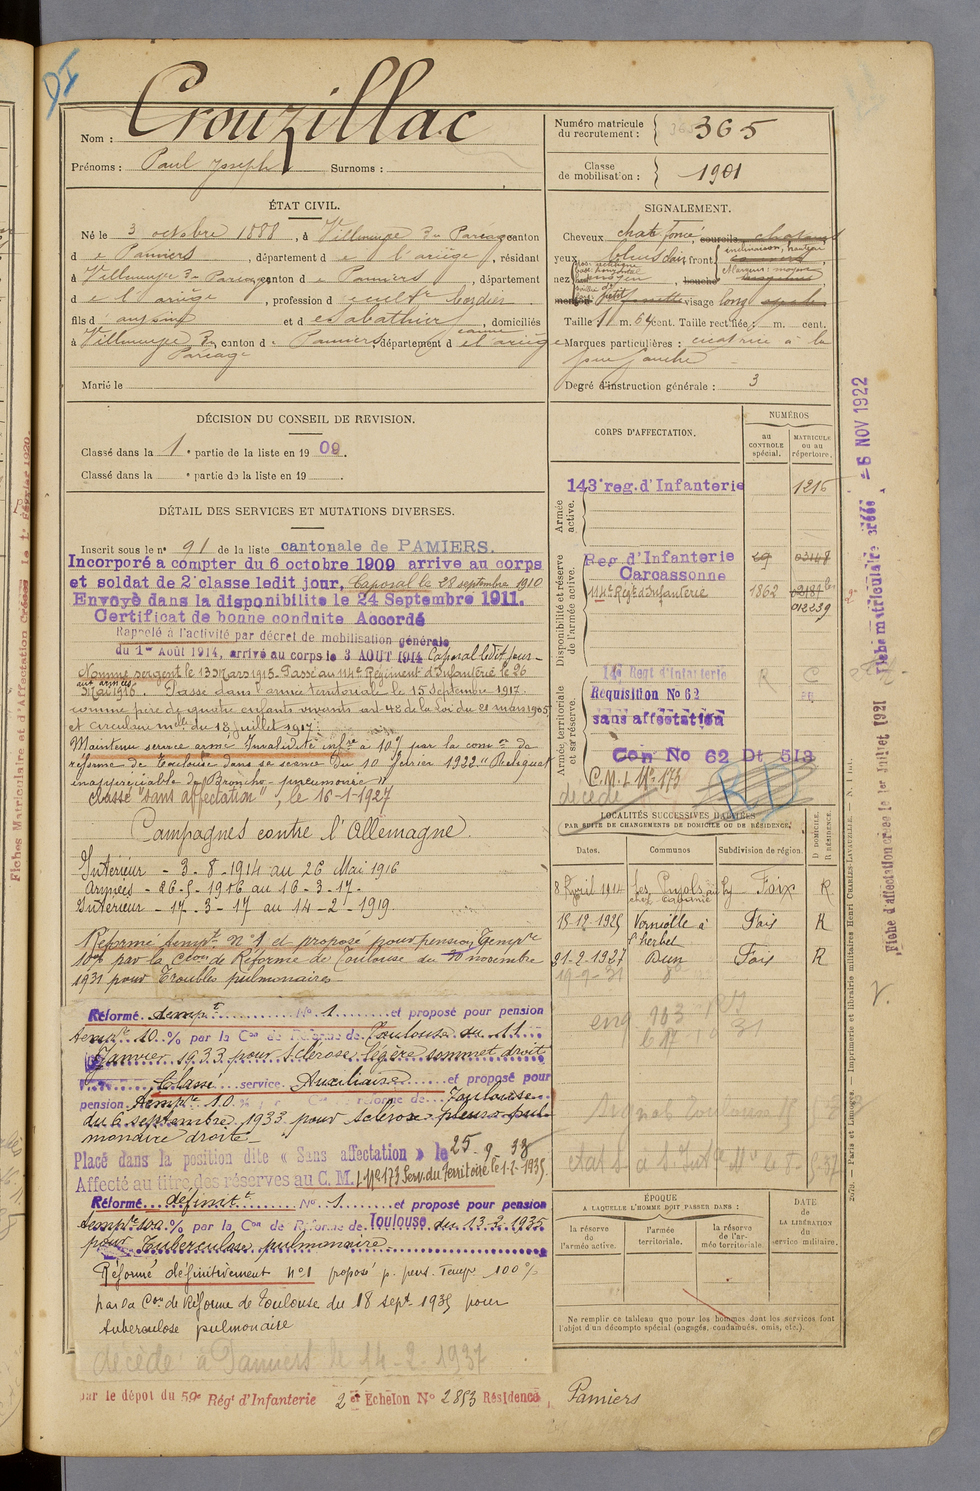 Nom : Crouzillac
Prénoms : Paul Joseph Surnoms :
Numéro matricule du recrutement : 365
Classe de mobilisation : 1901
ÉTAT CIVIL.
Né le 3 octobre 1888, à Villeneuve du Paréage canton
d e Pamiers, département d e l'ariège, résidant
à Villeneuve du Paréage canton d e Pamiers, département
d e l'ariège, profession d cultr
fils d et d domiciliés
à Villeneuve du Paréage, canton d e Pamiers, département d e l'ariège
Marié le
SIGNALEMENT.
Cheveux chat. foncé sourcils chatains
yeux bleus clair front inclinaison, hauteur
nez moyen bouche
menton visage long
Taille 1 m. 64 cent. Taille rectifiée : m. cent.
Marques particulières : cicatrice à la
joue gauche
Degré d'instruction générale : 3
DÉCISION DU CONSEIL DE REVISION.
Classé dans la 1e partie de la liste en 1909.
Classé dans la e partie de la liste en 19
DÉTAIL DES SERVICES ET MUTATIONS DIVERSES.
Inscrit sous le n° 91 de la liste cantonale de PAMIERS.
Incorporé a compter du 6 octobre 1909 arrive au corps
et soldat de 2e classe ledit jour, Caporal le 28 septembre 1910
Envoyé dans la disponibilite le 24 Septembre 1911.
Certificat de bonne conduite Accordé
Rappelé à l'activité par décret de mobilisation générale
du 1er Août 1914, arrivé au corps le 3 AOUT 1914 Caporal ledit jour
Nommé sergent le 13 Mars 1915. Passé au 114e Régiment d'Infanterie le 26
aux armées
Mai 1916. Passé dans l'armée territoriale le 15 septembre 1917
comme père de quatre enfants vivants art 48 de la loi du 21 mars 1905
et circulaire mlle du 18 juillet 1917.
Maintenu service armé Invalidité infre à 10% par la comon de
réforme de Toulouse dans sa séance du 10 février 1922. "Reliquat
inappréciable de Broncho-pneumonie"
classé "sans affectation", le 16-1-1927
Campagnes contre l'Allemagne.
Intérieur - 3-8-1914 au 26 Mai 1916
Armées - 26-5-1916 au 16-3-17.
Intérieur - 17-3-17 au 14-2-1919.
Réformé tempre n°1 et proposé pour pension tempre
10% par la Con de Réforme de Toulouse du novembre
1931 pour Troubles pulmonaires
Réformé tempt N° 1 et proposé pour pension
tempre 10 % par la Con de Réforme de Toulouse du 11
Janvier 1933 pour sclérose légère sommet droit
Classé service Auxiliaire et proposé pour
pension tempre 10 % par la Con de réforme de Toulouse
du 6 septembre 1933 pour sclérose pleuro pul-
monaire droite
Placé dans la position dite « Sans affectation » le 25-9-33
Affecté au titre des réserves au C. M. I. n° 173 Serv. du Territoire le 1-2-1935
Réformé définitt N° 1 et proposé pour pension
tempre 100 % par la Con de Réforme de Toulouse du 13-2-1935
pour Tuberculose pulmonaire
Réformé définitivement n°1 proposé p. pens. Temp 100%
par la Con de Réforme de Toulouse du 18 sept 1935 pour
tuberculose pulmonaire
décédé à Pamiers le 14-2-1937
par le dépot du 59e Régt d'Infanterie 2e Échelon N° 2853 Résidence, Pamiers
CORPS D'AFFECTATION.
NUMÉROS
au CONTROLE spécial.
MATRICULE ou au répertoire.
Armée active.
143e reg. d'Infanterie 1216
Disponibilité et réserve de l'armée active.
Reg d'Infanterie Carcassonne
114e Régt d'Infanterie 1862 02239
Armée territoriale et sa réserve.
14e Regt d'Infanterie
Requisition No 62
sans affectation
Con No 62 Dt 513
C.M.I. N° 173
décédé
LOCALITÉS SUCCESSIVES HABITÉES
PAR SUITE DE CHANGEMENTS DE DOMICILE OU DE RÉSIDENCE.
Dates. Communes Subdivision de région. D DOMICILE. R RÉSIDENCE.
8 Avril 1914 Les Pujols Foix R
18-12-1925 Verniolle à Foix R
21-2-1927 Dun Foix R
ÉPOQUE
A LAQUELLE L'HOMME DOIT PASSER DANS :
la réserve de l'armée active. l'armée territoriale. la réserve de l'armée territoriale
DATE DE LA LIBÉRATION du service militaire.
Ne remplir ce tableau que pour les hommes dont les services font
l'objet d'un décompte spécial (engagés, condamnés, omis, etc.).
Fiches Matriculaire et d'Affectation Créées Le 1er Février 1920.
Fiche d'affectation créée le 1er Juillet 1921
Fiche matriculaire créée - 6 NOV 1922
Paris et Limoges — Imprimerie et librairie militaires Henri CHARLES-LAVAUZELLE.